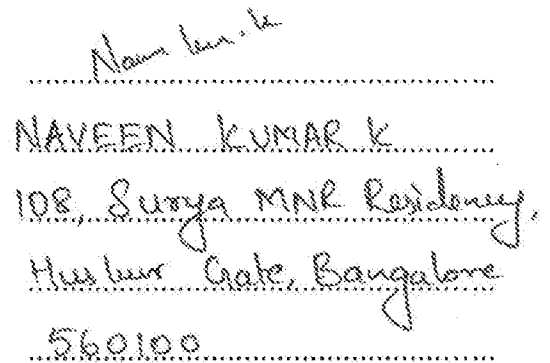 Naveen Kumar. K
NAVEEN KUMAR K
108, Surya MNR Residency,
Huskur Gate, Bangalore
560100